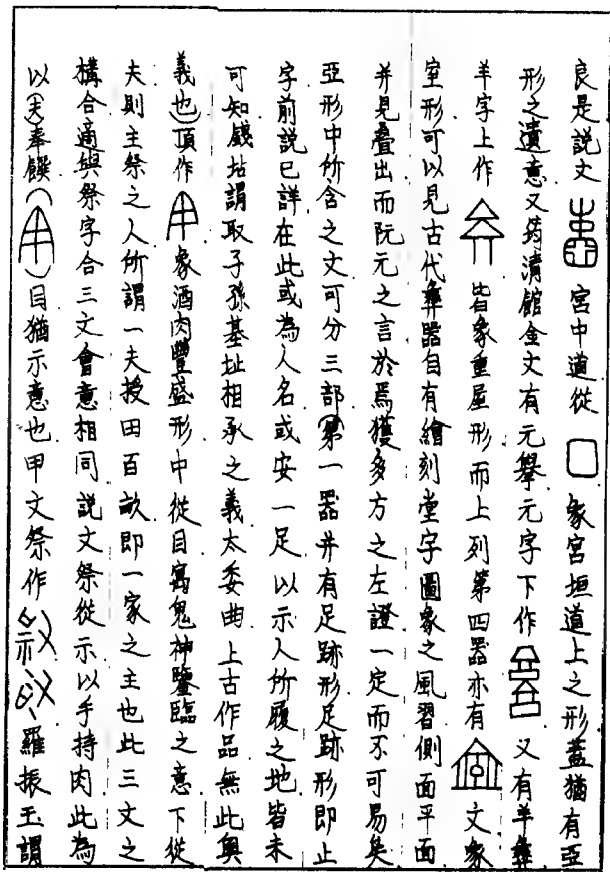 良是説文宮中道從囗象宮垣道上之形蓋猶有亞
形之遺意又筠清館金文有元舉元字下作又有羊彝
羊字上作皆象重屋形而上列第四器亦有文象
室形可以見古代彝器自有繪刻堂宇圖象之風習側面平面
并見疊出而阮元之言於焉獲多方之左證一定而不可易矣
亞形中所含之文可分三部第一器并有足跡形足跡形即止
字前説已詳在此或為人名或安一足以示人所履之地皆未
可知錢坫謂取子孫基址相承之義太委曲上古作品無此奧
義也頂作象酒肉豐盛形中從目寓鬼神鑒臨之意下從
夫則主祭之人所謂一夫授田百畝即一家之主也此三文之
構合適與祭字合三文會意相同説文祭從示以手持肉此為
以(夫)奉饌()目猶示意也甲文祭作羅振玉謂